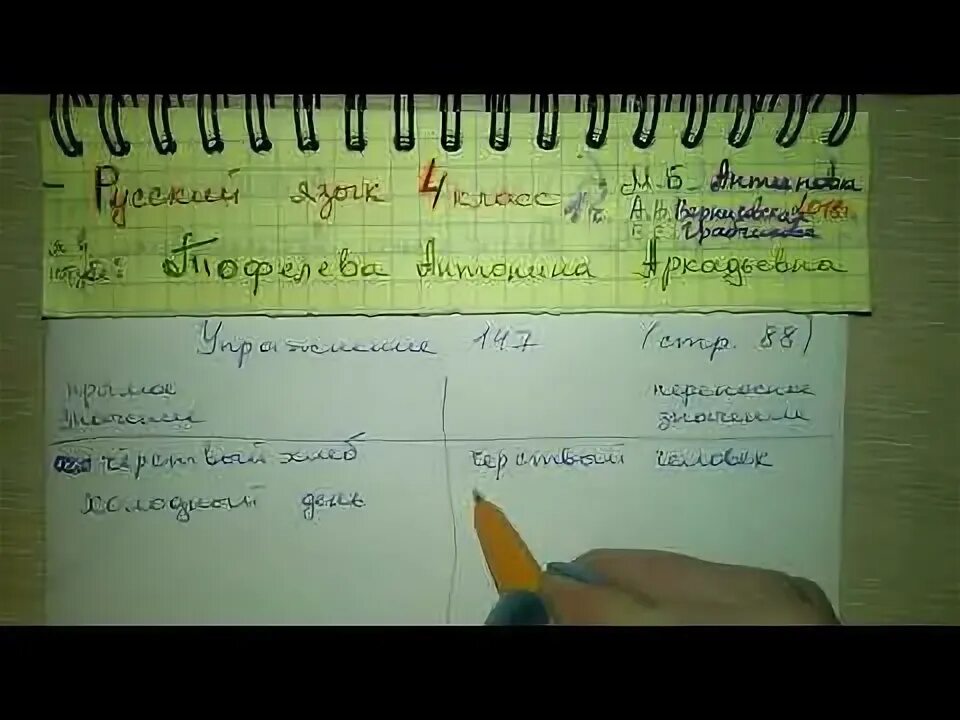 Русский язык 4 класс
М. Б. Антипова
А. В. Верниковская
Е. С. Грабчикова
Тофелева Антонина Аркадьевна
Упражнение 147 (стр. 88)
прямое переносное
значение значение
черствый хлеб черствый человек
холодный день